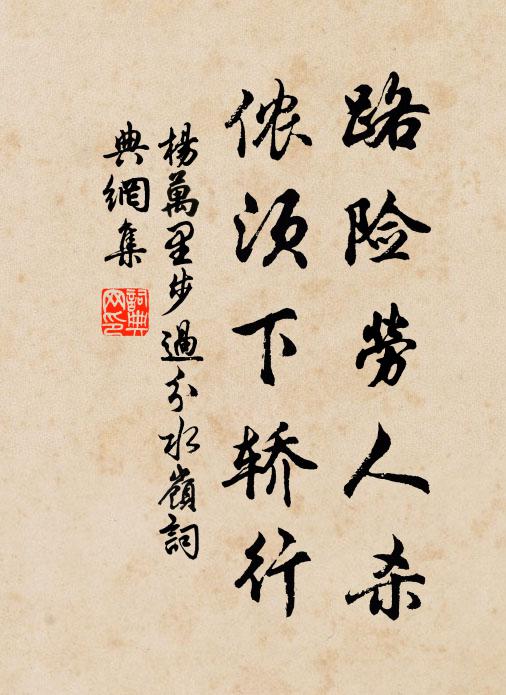 路险劳人杀
侬须下轿行
楊萬里步過分水嶺詞
典網集
詞典網印